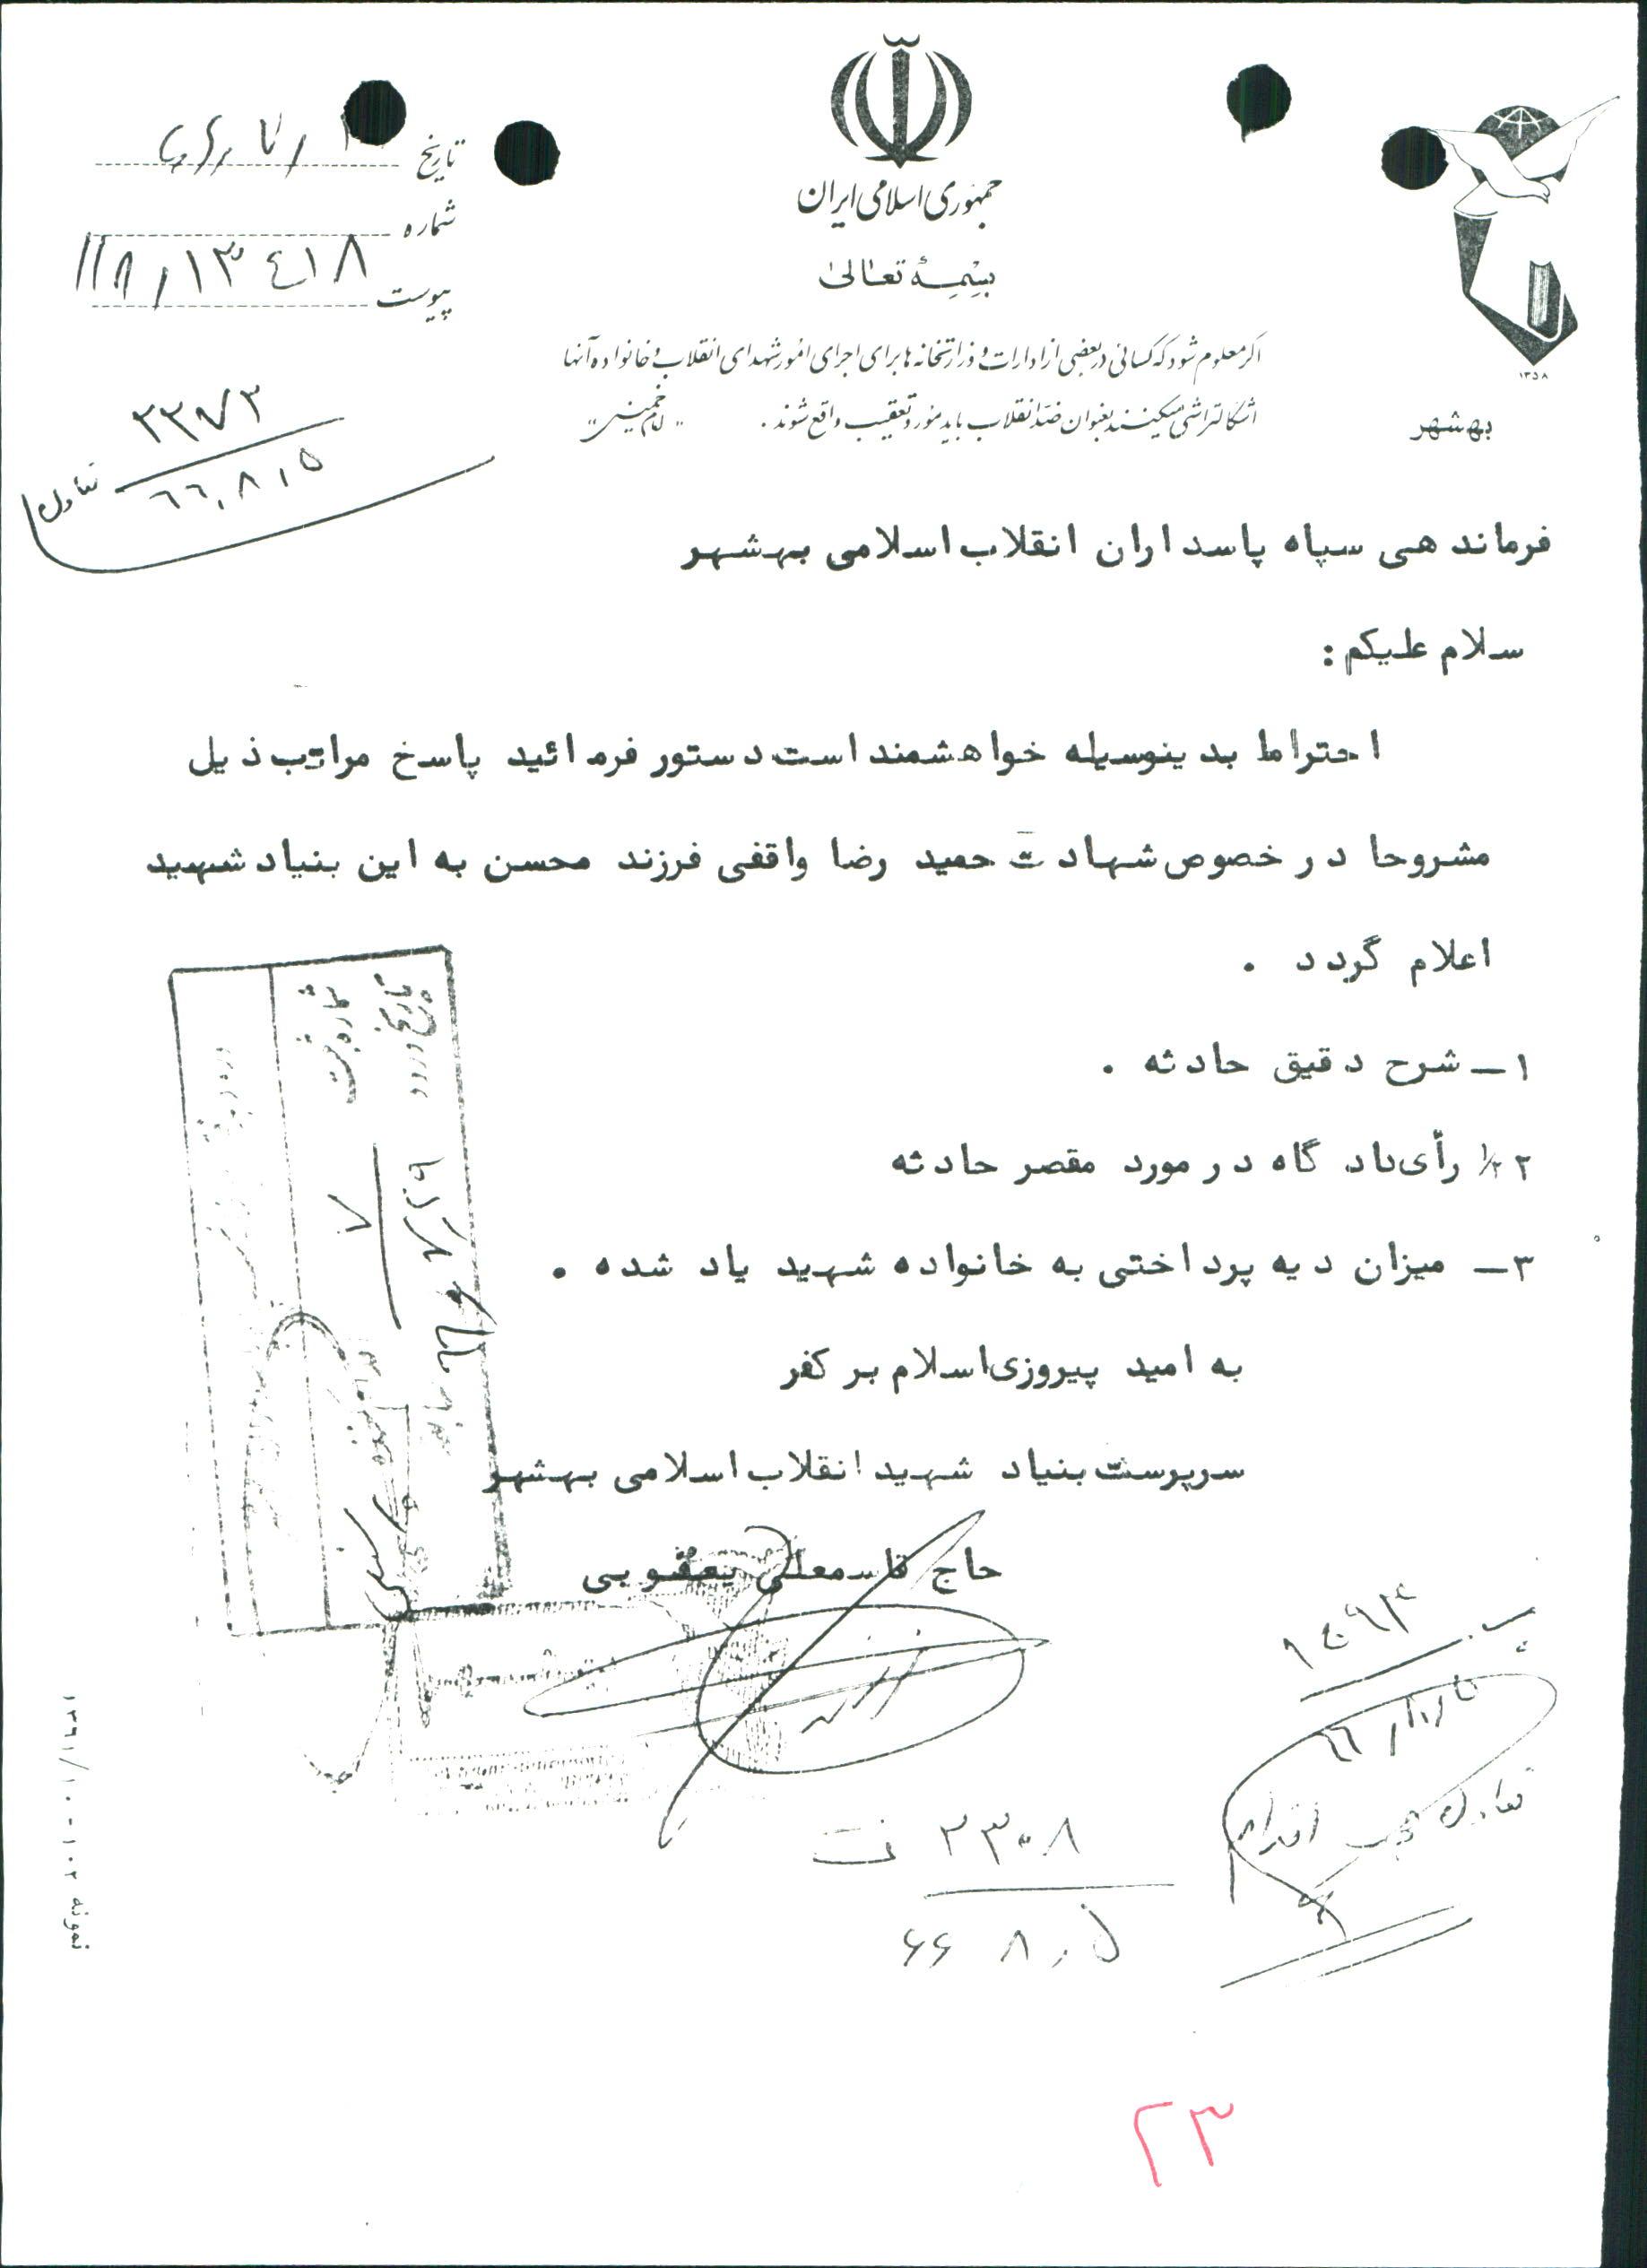 جمهوری اسلامی ایران
بسمه تعالی
تاریخ
شماره
۱۱۸/۱۳۴۱۸
پیوست
۱۳۵۸
اگر معلوم شود که کسانی در بعضی از ادارات و وزارتخانه ها برای اجرای امور شهدای انقلاب و خانواده آنها
اشکالتراشی میکنند بعنوان ضد انقلاب باید مورد تعقیب واقع شوند . "امام خمینی"
بهشهر
۳۳۷۳
۶۶,۸,۵
فرماندهی سپاه پاسداران انقلاب اسلامی بهشهر
سلام علیکم :
احتراما بدینوسیله خواهشمند است دستور فرمائید پاسخ مراتب ذیل
مشروحا در خصوص شهادت حمید رضا واقفی فرزند محسن به این بنیاد شهید
اعلام گردد .
۱ـ شرح دقیق حادثه .
۲ رأی دادگاه در مورد مقصر حادثه
۳ـ میزان دیه پرداختی به خانواده شهید یاد شده .
به امید پیروزی اسلام بر کفر
سرپرست بنیاد شهید انقلاب اسلامی بهشهر
حاج قاسمعلی یعقوبی
تاریخ ورود
شماره ثبت
۷
اقدام
۳۳۰۸ ث
۶۶ ۸,۵
نمونه ۱۰۲ - ۱۳۶۱/۱۰
۲۳